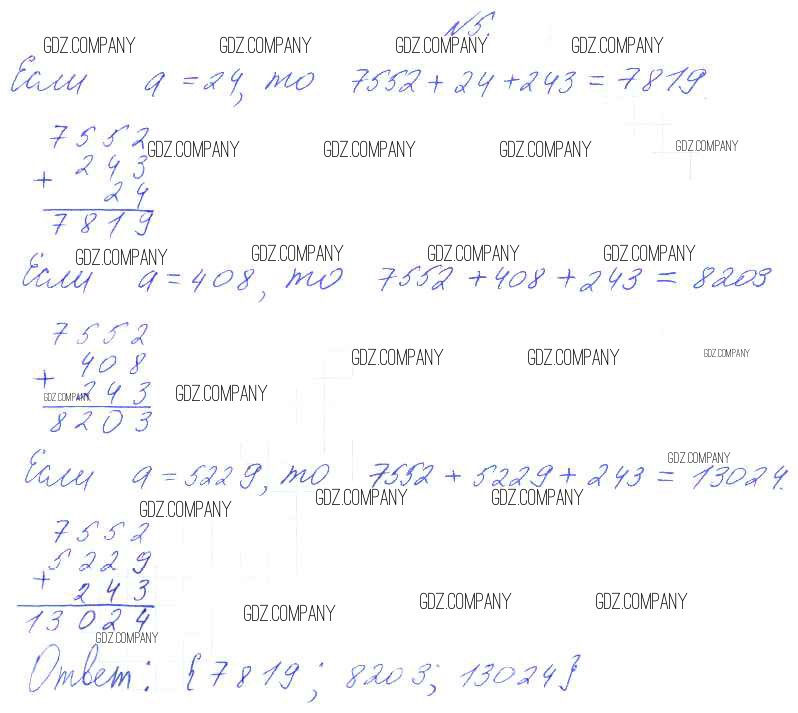 №5.
GDZ.COMPANY GDZ.COMPANY GDZ.COMPANY GDZ.COMPANY
Если a = 24, то 7552 + 24 + 243 = 7819
7552
GDZ.COMPANY GDZ.COMPANY GDZ.COMPANY GDZ.COMPANY
243
+
24
7819
GDZ.COMPANY GDZ.COMPANY GDZ.COMPANY GDZ.COMPANY
Если a = 408, то 7552 + 408 + 243 = 8203
7552
GDZ.COMPANY GDZ.COMPANY GDZ.COMPANY
408
+
243
GDZ.COMPANY GDZ.COMPANY
8203
GDZ.COMPANY
Если a = 5229, то 7552 + 5229 + 243 = 13024.
GDZ.COMPANY GDZ.COMPANY GDZ.COMPANY
7552
5229
+
243
GDZ.COMPANY GDZ.COMPANY GDZ.COMPANY
13024
GDZ.COMPANY
Ответ: {7819; 8203; 13024}